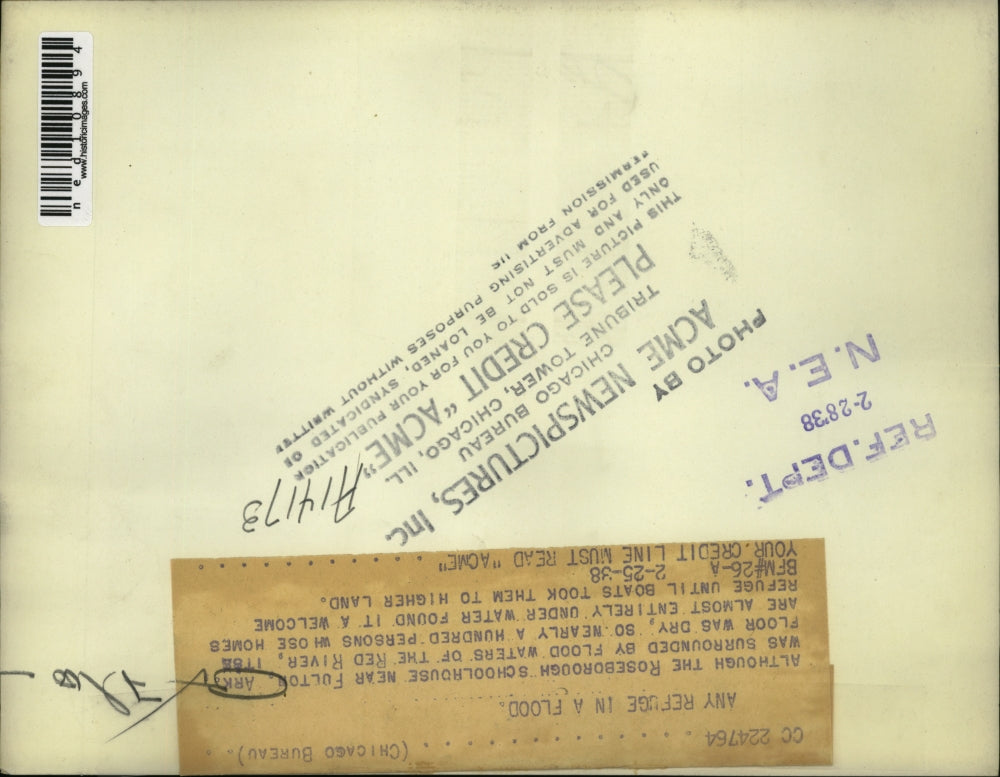 CC 224764 . . . . . . . . . . . . . . (CHICAGO BUREAU).
ANY REFUGE IN A FLOOD.
ALTHOUGH THE ROSEBOROUGH SCHOOLHOUSE NEAR FULTON ARK.
WAS SURROUNDED BY FLOOD WATERS OF THE RED RIVER, ITS
FLOOR WAS DRY, SO NEARLY A HUNDRED PERSONS WHOSE HOMES
ARE ALMOST ENTIRELY UNDER WATER FOUND IT A WELCOME
REFUGE UNTIL BOATS TOOK THEM TO HIGHER LAND.
BFM#26-A 2-25-38
YOUR CREDIT LINE MUST READ "ACME" . . . . . . . . . . . . .
A14173
PHOTO BY
ACME NEWSPICTURES, Inc.
CHICAGO BUREAU
TRIBUNE TOWER, CHICAGO, ILL.
PLEASE CREDIT "ACME"
THIS PICTURE IS SOLD TO YOU FOR YOUR PUBLICATION
ONLY AND MUST NOT BE LOANED, SYNDICATED OR
USED FOR ADVERTISING PURPOSES WITHOUT WRITTEN
PERMISSION FROM US
REF. DEPT.
2-28'38
N.E.A.
ned10894
www.historicimages.com